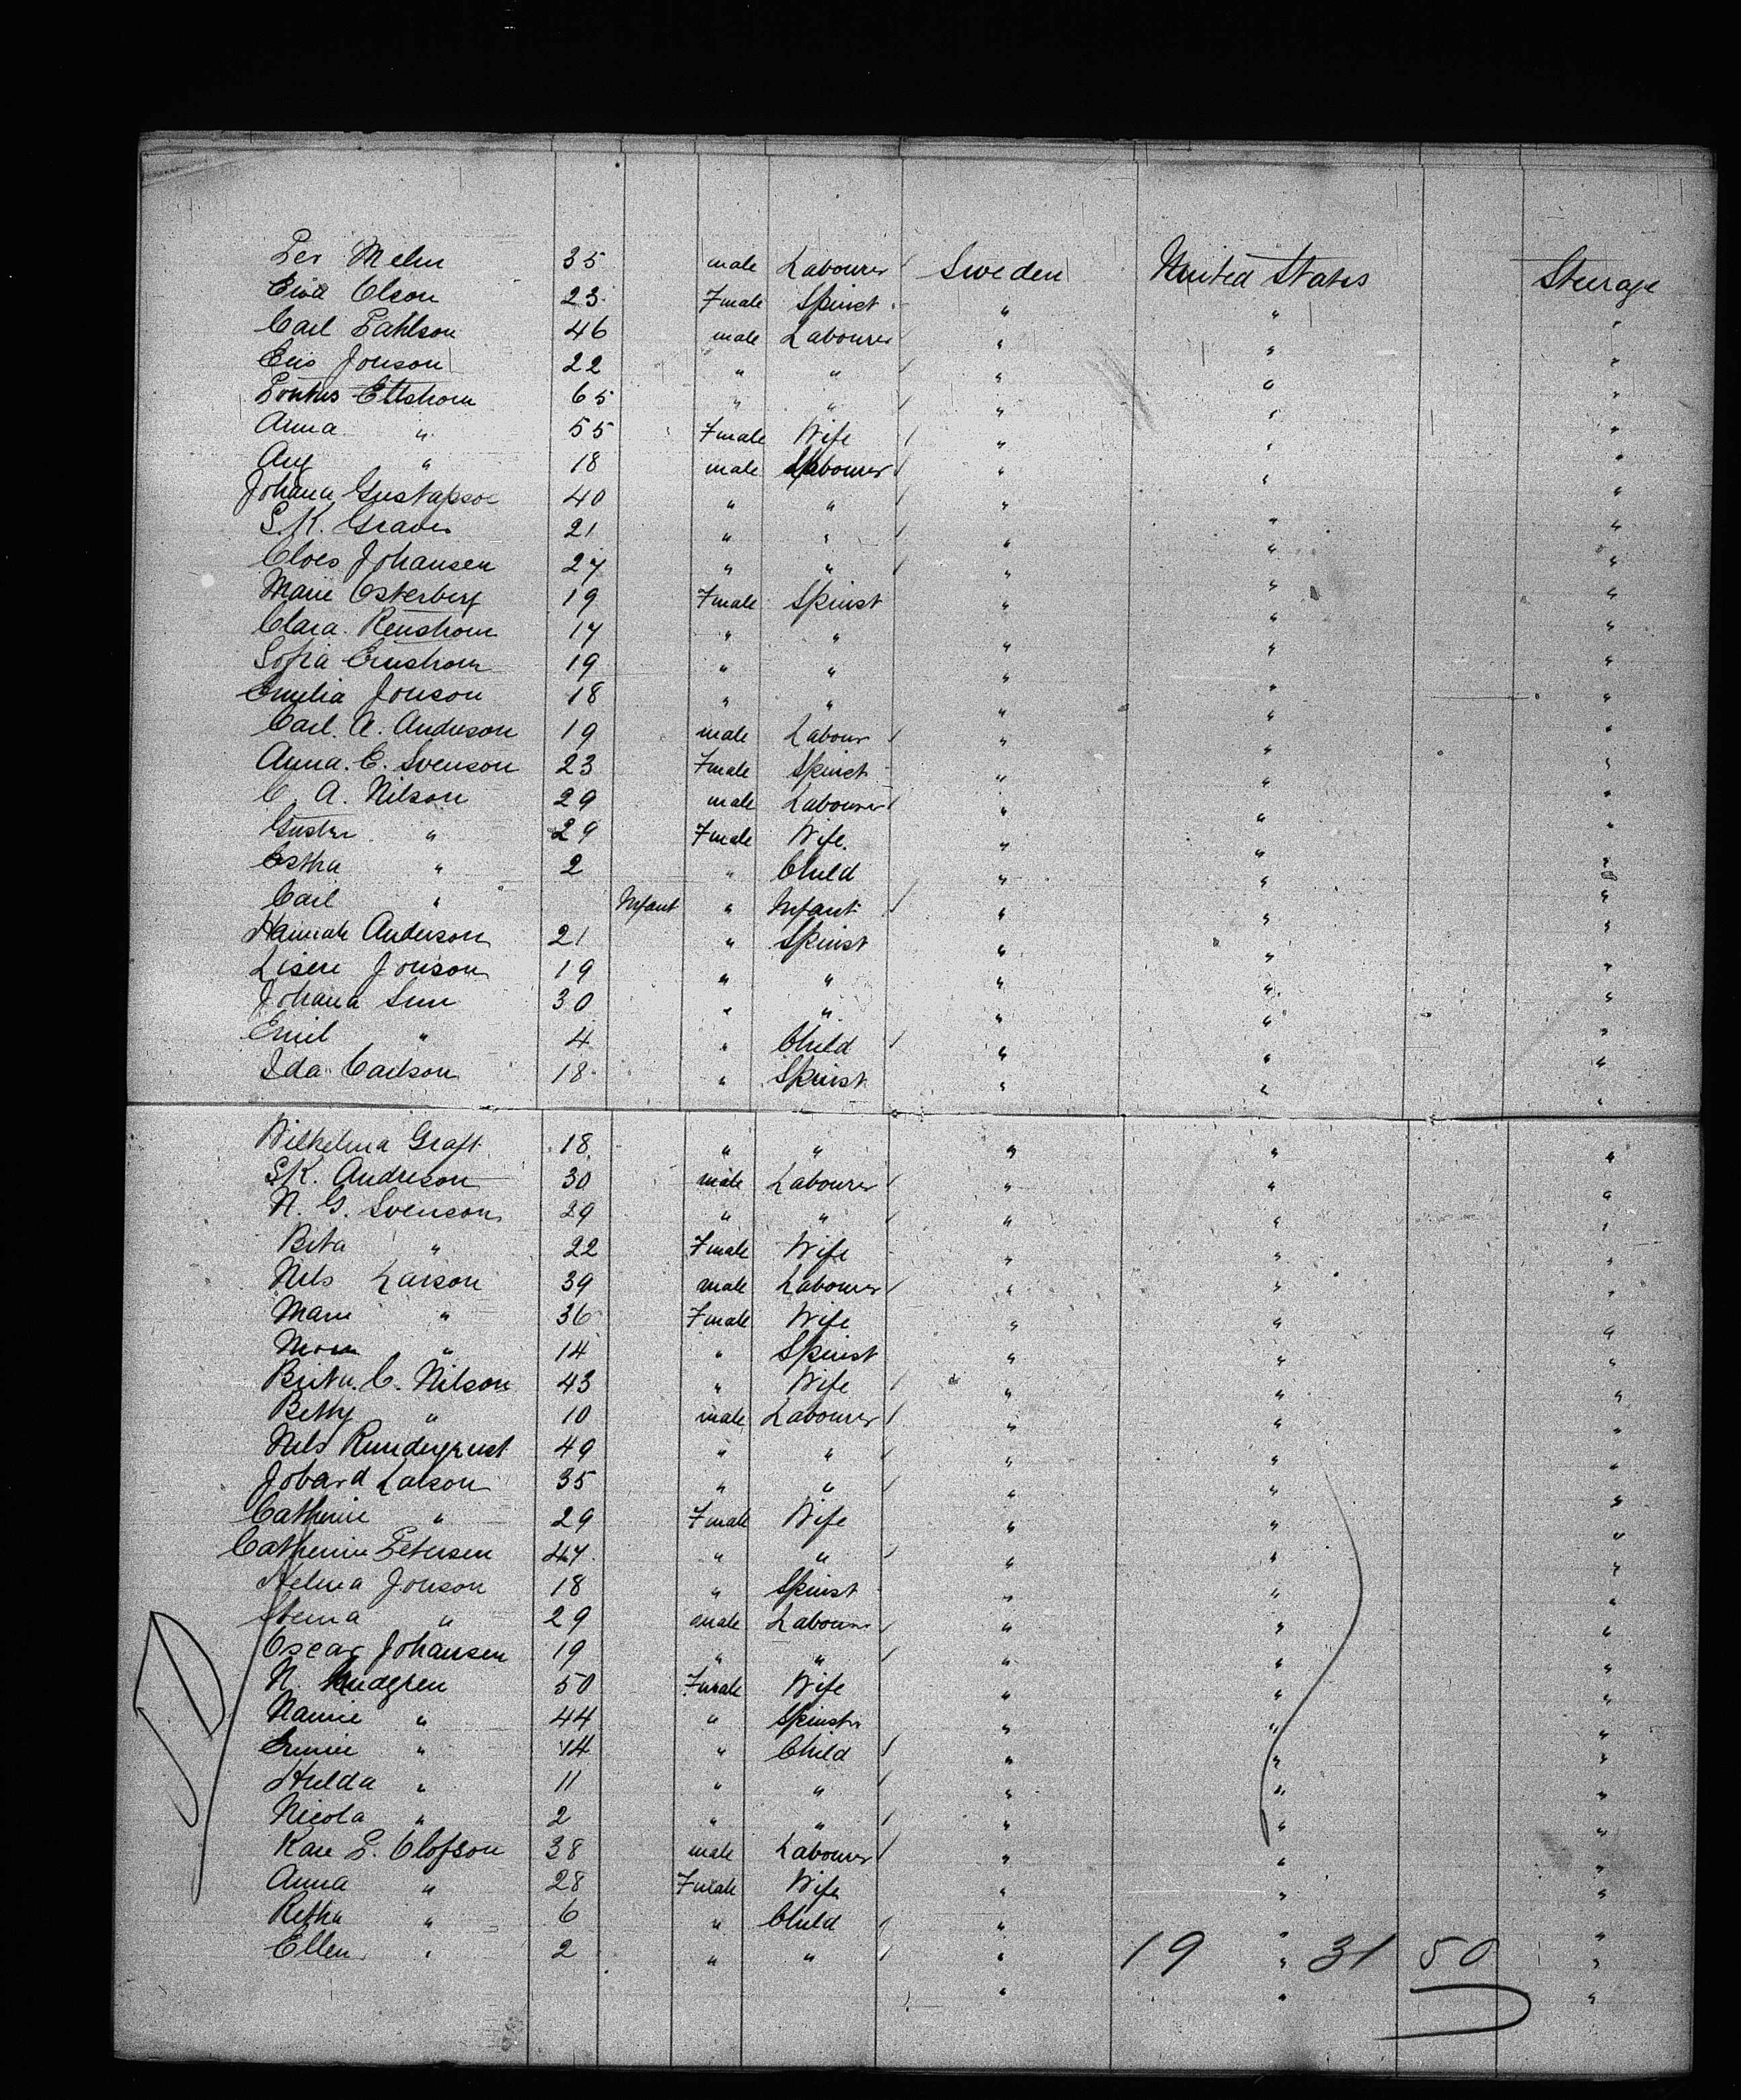 Per Melin 35 male Labourer Sweden United States Steerage
Eiva Olson 23 Female Spinst " " "
Carl Pahlson 46 male Labourer " " "
Eric Jonson 22 " " " " "
Pontus Ettstrom 65 " " " " "
Anna " 55 Female Wife " " "
Aug " 18 male Labourer " " "
Johana Gustafson 40 " " " " "
S. K. Graves 21 " " " " "
Cloes Johansen 27 " " " " "
Marie Osterberg 19 Female Spinst " " "
Clara Renstrom 17 " " " " "
Sofia Ernstrom 19 " " " " "
Emelia Jonson 18 " " " " "
Carl. A. Anderson 19 male Labour " " "
Anna. C. Svenson 23 Female Spinst " " "
C. A. Nilson 29 male Labourer " " "
" 29 Female Wife. " " "
Estha " 2 " Child " " "
Carl " Infant " Infant " " "
Hannah Anderson 21 " Spinst " " "
Lisen Jonson 19 " " " " "
Johana 30 " " " " "
Emil " 4 " Child " " "
Ida Carlson 18 " Spinst " " "
Wilhelma Graft 18 " " " " "
S. K. Anderson 30 male Labourer " " "
N. G. Svenson 29 " " " " "
Beta " 22 Female Wife " " "
Nels Larson 39 male Labourer " " "
Marie " 36 Female Wife " " "
" 14 " Spinst " " "
C. Nilson 43 " Wife " " "
Betty " 10 male Labourer " " "
Nels 49 " " " " "
Jobard Larson 35 " " " " "
Catherine " 29 Female Wife " " "
Catherine Petersen 47 " " " " "
Helma Jonson 18 " Spinst " " "
" 29 male Labourer " " "
Oscar Johansen 19 " " " " "
N. 50 Female Wife " " "
Nannie " 44 " Spinstr " " "
" 14 " Child " " "
Hulda " 11 " " " " "
Nicola " 2 " " " " "
Kare L. Olofson 38 male Labourer " " "
Anna " 28 Female Wife " " "
Retha " 6 " Child " " "
Ellen " 2 " " " 19 " 31 50 "
" " "